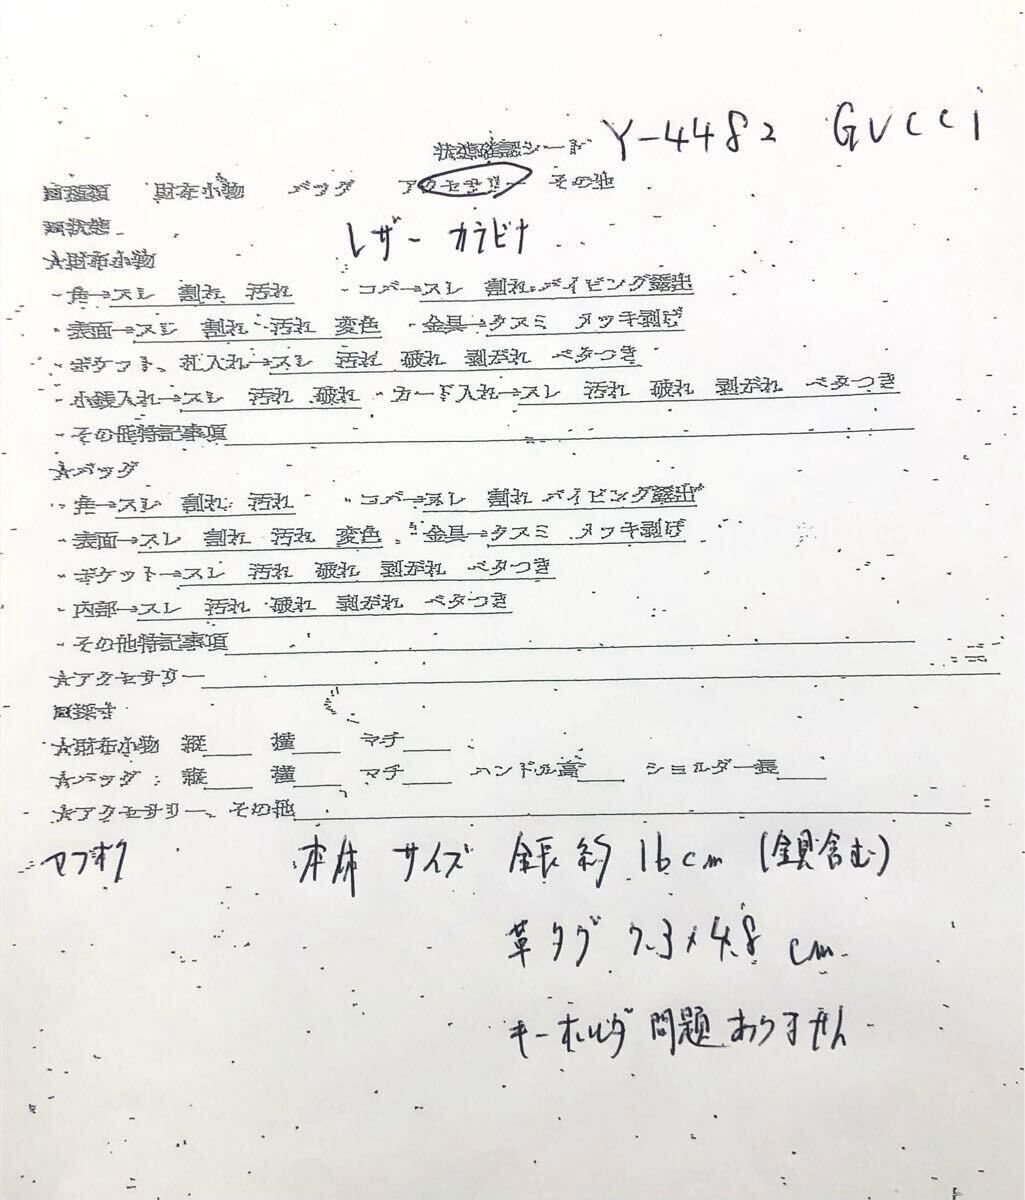 状態確認シート Y-4482 GUCCI
種類 財布小物 バッグ アクセサリー その他
状態
レザー カラビナ
☆財布小物
・角→スレ 割れ 汚れ ・コバ→スレ 割れ パイピング露出
・表面→スレ 割れ 汚れ 変色 ・金具→クスミ メッキ剥げ
・ポケット、札入れ→スレ 汚れ 破れ 剥がれ ベタつき
・小銭入れ→スレ 汚れ 破れ ・カード入れ→スレ 汚れ 破れ 剥がれ ベタつき
・その他特記事項
☆バッグ
・角→スレ 割れ 汚れ ・コバ→スレ 割れ パイピング露出
・表面→スレ 割れ 汚れ 変色 ・金具→クスミ メッキ剥げ
・ポケット→スレ 汚れ 破れ 剥がれ ベタつき
・内部→スレ 汚れ 破れ 剥がれ ベタつき
・その他特記事項
☆アクセサリー
採寸
☆財布小物 縦 横 マチ
☆バッグ 縦 横 マチ ハンドル高 ショルダー長
☆アクセサリー、その他
ヤフオク 本体 サイズ 全長約 16cm (金具含む)
革タグ 7.3×4.8 cm
キーホルダ 問題ありません